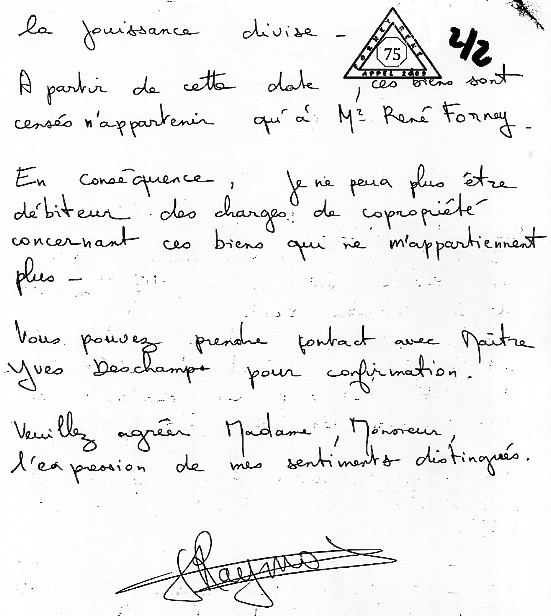 la jouissance divise -
FORNEY RENE
75
APPEL 2009
2/2
A partir de cette date, ces biens sont
censés n'appartenir qu'à Mr René Forney -
En conséquence, Je ne peux plus être
débiteur des charges de copropriété
concernant ces biens qui ne m'appartiennent
plus -
Vous pouvez prendre contact avec Maître
Yves Deschamps pour confirmation.
Veuillez agréer Madame, Monsieur,
l'expression de mes sentiments distingués.